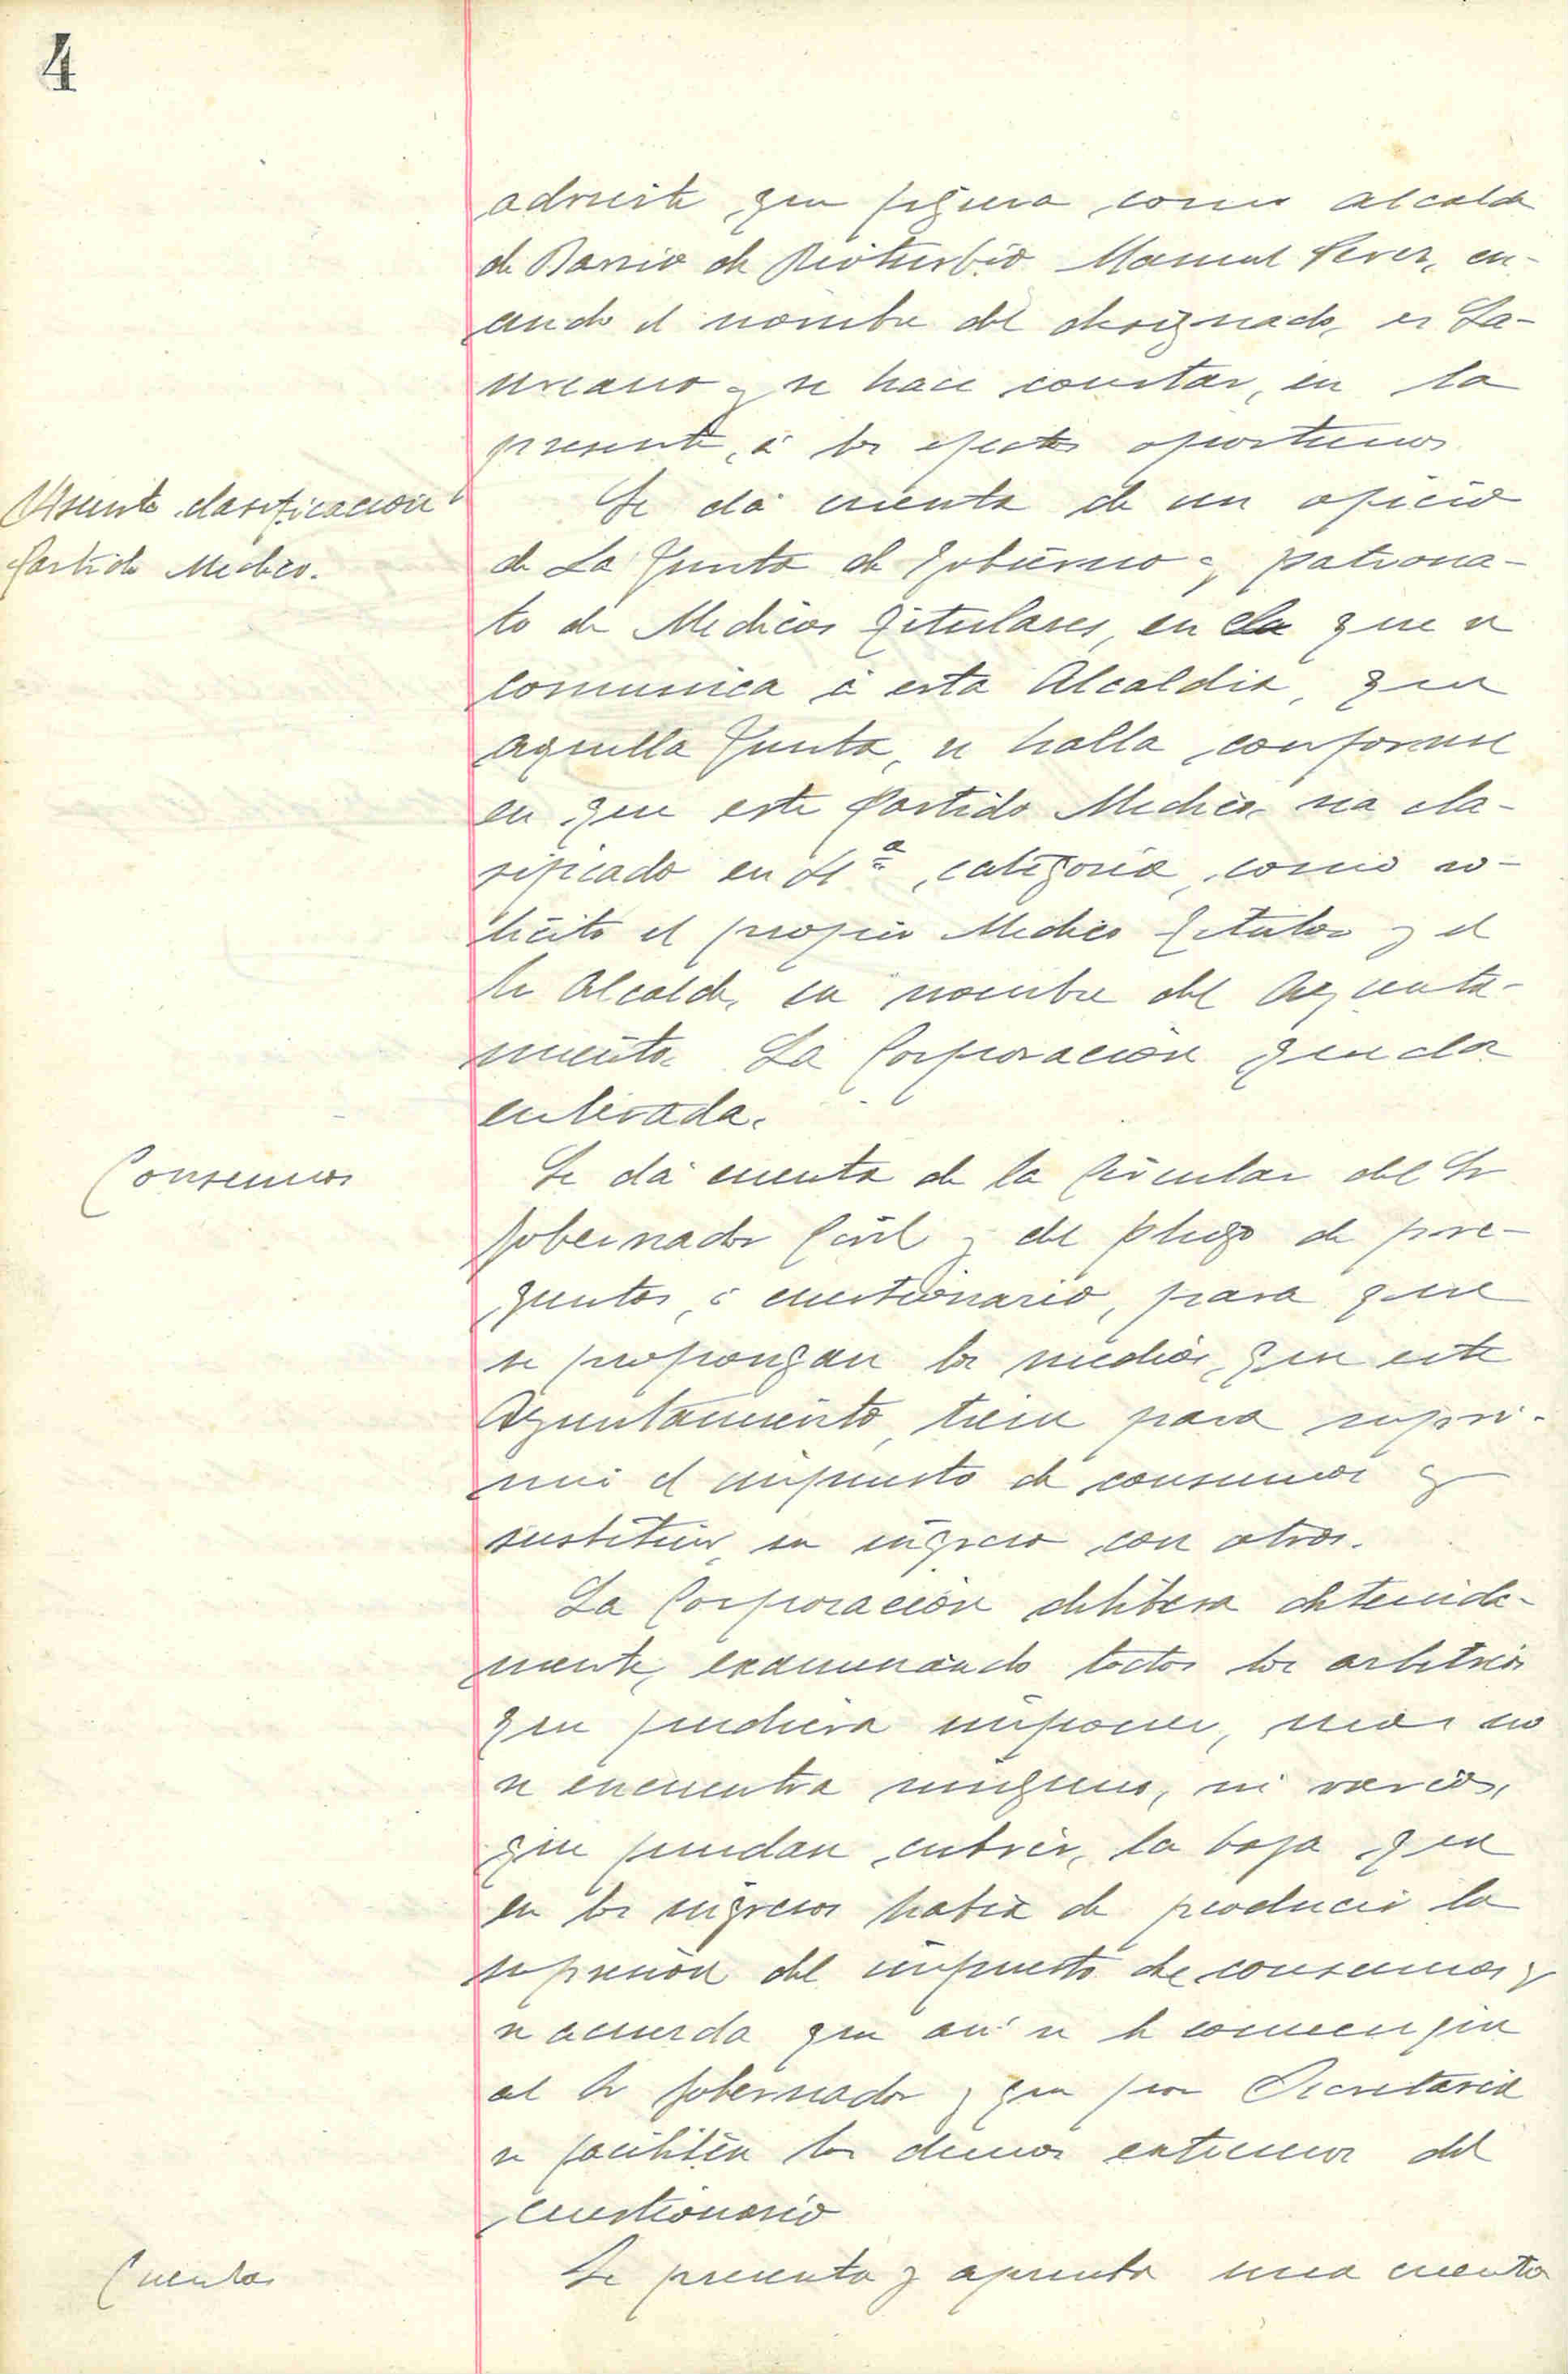 4
advierte que figura como alcalde
de Barrio de Rioturbio Manuel Perez, cu-
ando el nombre del designado, es La-
ureano y se hace constar, en la
presente, á los efectos oportunos
Asunto clasificacion
Partido Medico.
Se dá cuenta de un oficio
de La Junta de Gobierno y patrona-
to de Medicos Titulares, en la que se
comunica á esta Alcaldia, que
aquella Junta, se halla conforme
en que este Partido Medico, sea cla-
sificado en 4ª categoria, como so-
licitó el propio Medico Titular y el
Sr Alcalde, en nombre del Ayunta-
miento. La Corporación queda
enterada.
Consumos
Se dá cuenta de la Circular del Sr
Gobernador Civil y del pliego de pre-
guntas, ó cuestionario, para que
se propongan los medios, que este
Ayuntamiento, tiene para supri-
mir el impuesto de consumos y
sustituir su ingreso con otros.
La Corporación delibera detenida-
mente, examinando todos los arbitrios
que pudiera imponer, mas no
se encuentra ninguno, ni varios,
que puedan cubrir, la baja que
en los ingresos habia de producir la
supresión del impuesto de consumos y
se acuerda que asi se le comunique
al Sr Gobernador y que por Secretaria
se faciliten los demas extremos del
cuestionario
Cuentas
Se presenta y aprueba una cuenta